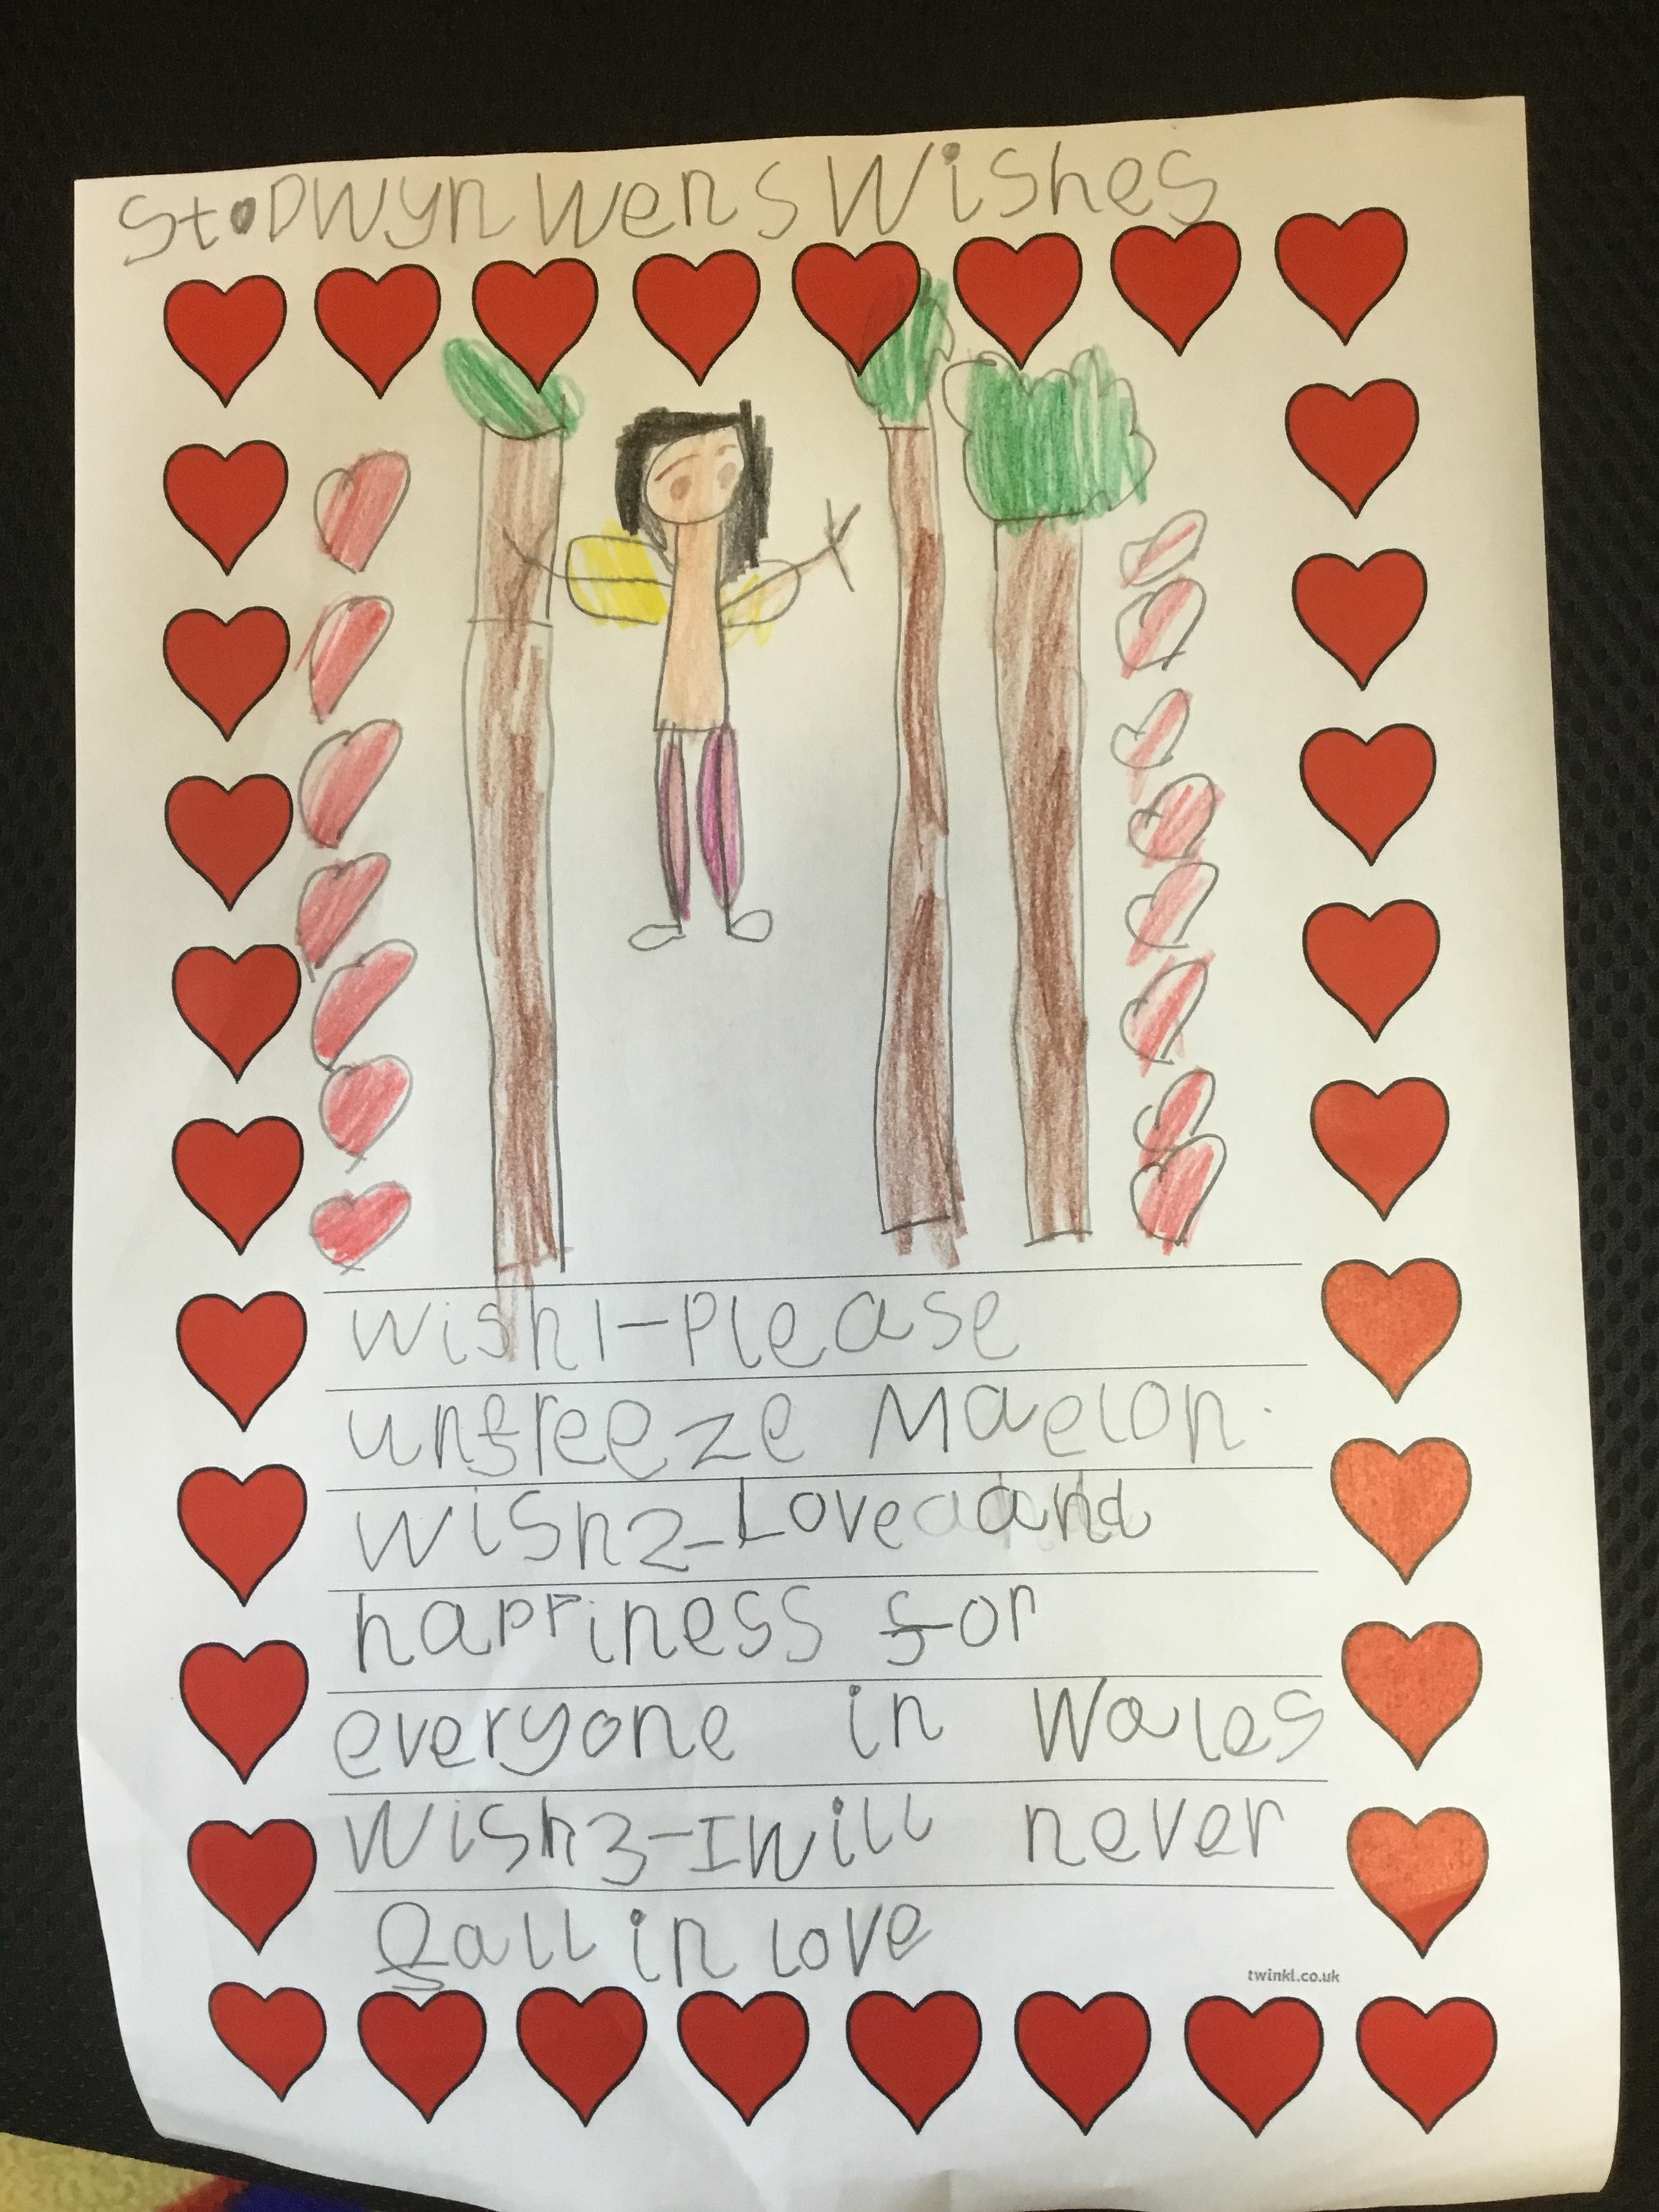 St. Dwyn wens Wishes
wish1-Please
unfreeze Maelon.
wish2-Love and
happiness for
everyone in Wales
Wish3-I will never
fall in love
twinkl.co.uk